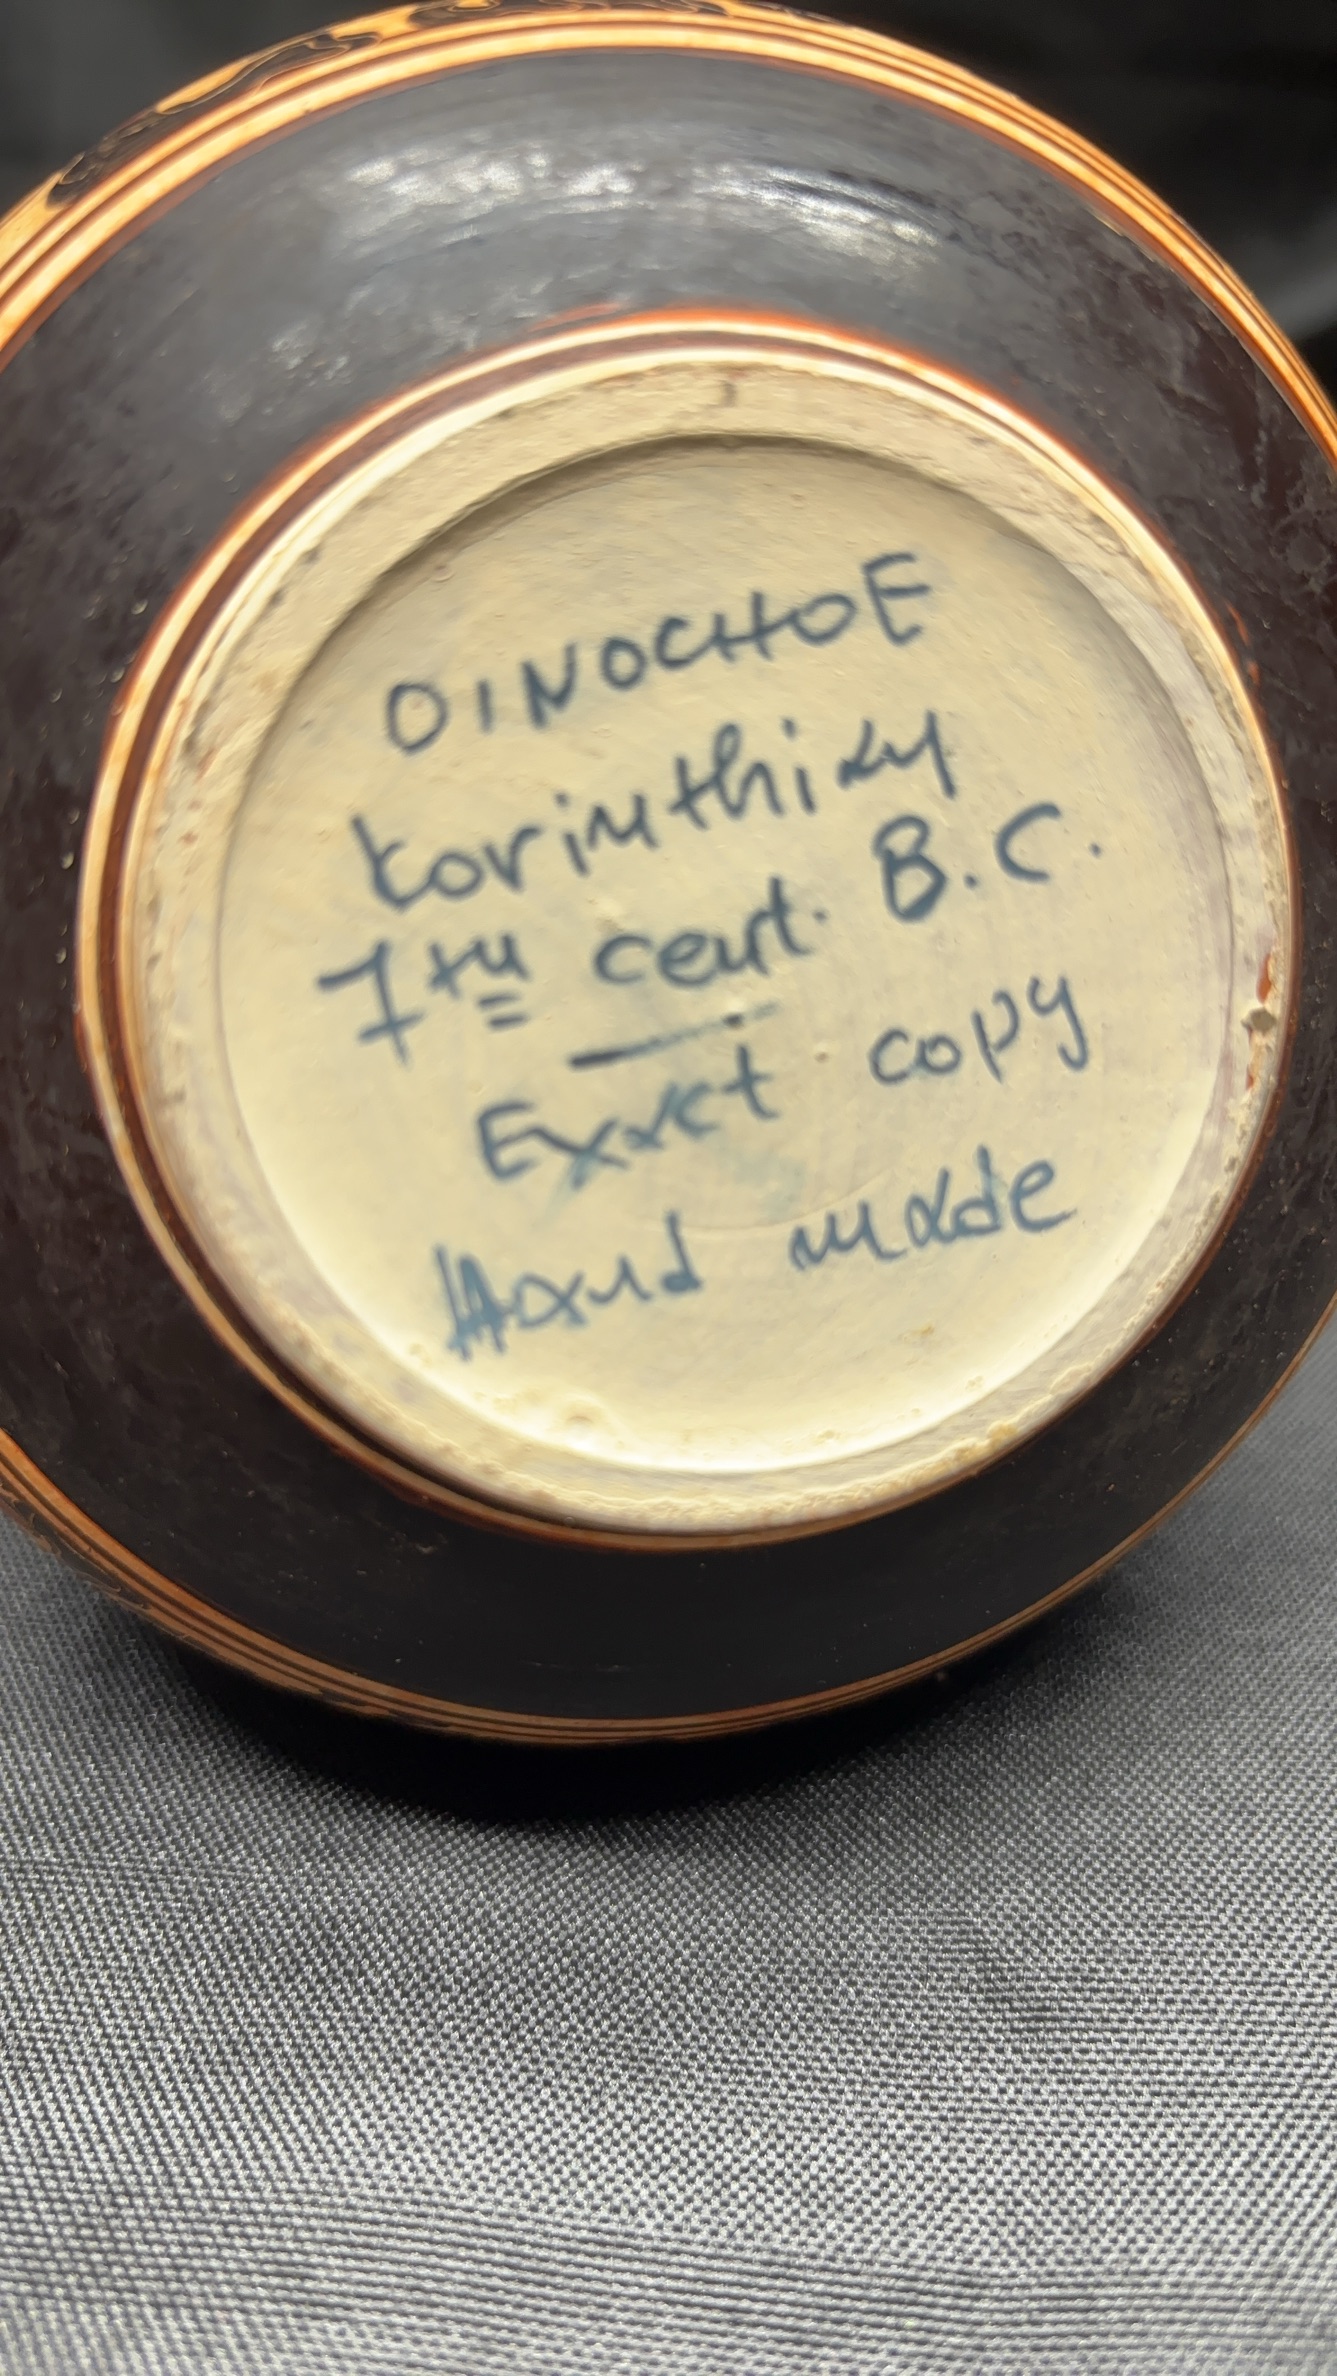 OINOCHOE
korinthian
7th cent. B.C.
Exact copy
Hand made